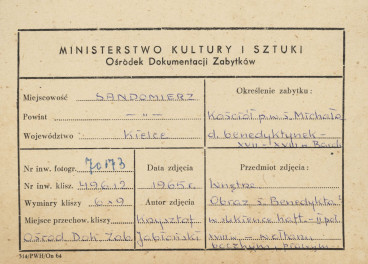 MINISTERSTWO KULTURY I SZTUKI
Ośrodek Dokumentacji Zabytków
Miejscowość SANDOMIERZ
Powiat — „ —
Województwo Kielce
Określenie zabytku:
Kościół p.w. ś. Michała
d. benedyktynek -
XVII - XVIII w.
Nr inw. fotogr. 70173
Nr inw. klisz. 49612
Wymiary kliszy 6x9
Miejsce przechow. kliszy
Ośrod. Dok. Zab
Data zdjęcia
1965 r.
Autor zdjęcia
Krzysztof
Jabłoński
Przedmiot zdjęcia:
Wnętrze
Obraz ś. Benedykta
w XVIII w. - w ołtarzu
bocznym
514/PWH/On 64